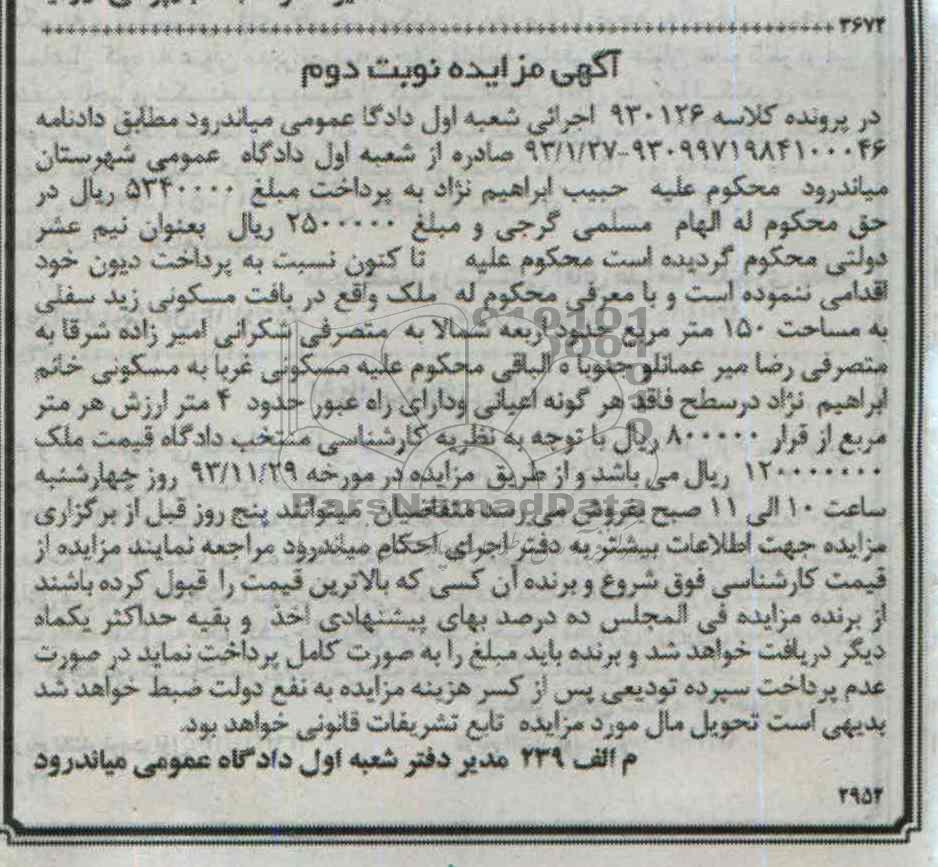 ۳۶۷۴
آگهی مزایده نوبت دوم
در پرونده کلاسه ۹۳۰۱۲۶ اجرائی شعبه اول دادگا عمومی میاندرود مطابق دادنامه
۹۳/۱/۲۷-۹۳۰۹۹۷۱۹۸۴۱۰۰۰۴۶ صادره از شعبه اول دادگاه عمومی شهرستان
میاندرود محکوم علیه حبیب ابراهیم نژاد به پرداخت مبلغ ۵۳۴۰۰۰۰ ریال در
حق محکوم له الهام مسلمی گرجی و مبلغ ۲۵۰۰۰۰۰ ریال بعنوان نیم عشر
دولتی محکوم گردیده است محکوم علیه تا کنون نسبت به پرداخت دیون خود
اقدامی ننموده است و با معرفی محکوم له ملک واقع در بافت مسکونی زید سفلی
به مساحت ۱۵۰ متر مربع حدود اربعه شمالا به متصرفی شکرانی امیر زاده شرقا به
متصرفی رضا میر عمانلو جنوبا ه الباقی محکوم علیه مسکونی غربا به مسکونی خانم
ابراهیم نژاد درسطح فاقد هر گونه اعیانی ودارای راه عبور حدود ۴ متر ارزش هر متر
مربع از قرار ۸۰۰۰۰۰ ریال با توجه به نظریه کارشناسی منتخب دادگاه قیمت ملک
۱۲۰۰۰۰۰۰۰ ریال می باشد و از طریق مزایده در مورخه ۹۳/۱۱/۲۹ روز چهارشنبه
ParsNamadData
ساعت ۱۰ الی ۱۱ صبح بفروش می رسد متقاضیان میتوانند پنج روز قبل از برگزاری
مزایده جهت اطلاعات بیشتر به دفتر اجرای احکام میندرود مراجعه نمایند مزایده از
قیمت کارشناسی فوق شروع و برنده آن کسی که بالاترین قیمت را قبول کرده باشند
از برنده مزایده فی المجلس ده درصد بهای پیشنهادی اخذ و بقیه حداکثر یکماه
دیگر دریافت خواهد شد و برنده باید مبلغ را به صورت کامل پرداخت نماید در صورت
عدم پرداخت سپرده تودیعی پس از کسر هزینه مزایده به نفع دولت ضبط خواهد شد
بدیهی است تحویل مال مورد مزایده تابع تشریفات قانونی خواهد بود.
م الف ۲۳۹ مدیر دفتر شعبه اول دادگاه عمومی میاندرود
۲۹۵۲